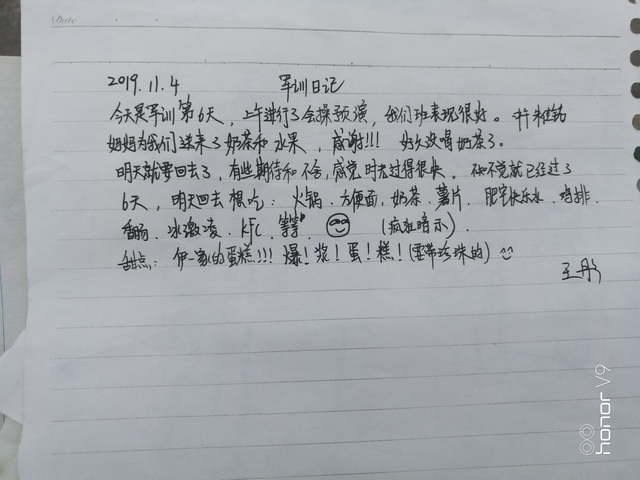 Date
2019.11.4 军训日记
今天是军训第6天,上午进行了会操预演,我们班表现很好。
妈妈为我们送来了奶茶和水果,感谢!!! 好久没喝奶茶了。
明天就要回去了,有些期待和不舍,感觉时光过得很快。不知不觉就已经过了
6天,明天回去想吃:火锅.方便面.奶茶.薯片.肥宅快乐水.鸡排.
香肠.冰激凌.KFC.等等 (疯狂暗示).
甜点:伊一家的蛋糕!!!爆!浆!蛋!糕!(要带珍珠的)
王彤
honor V9